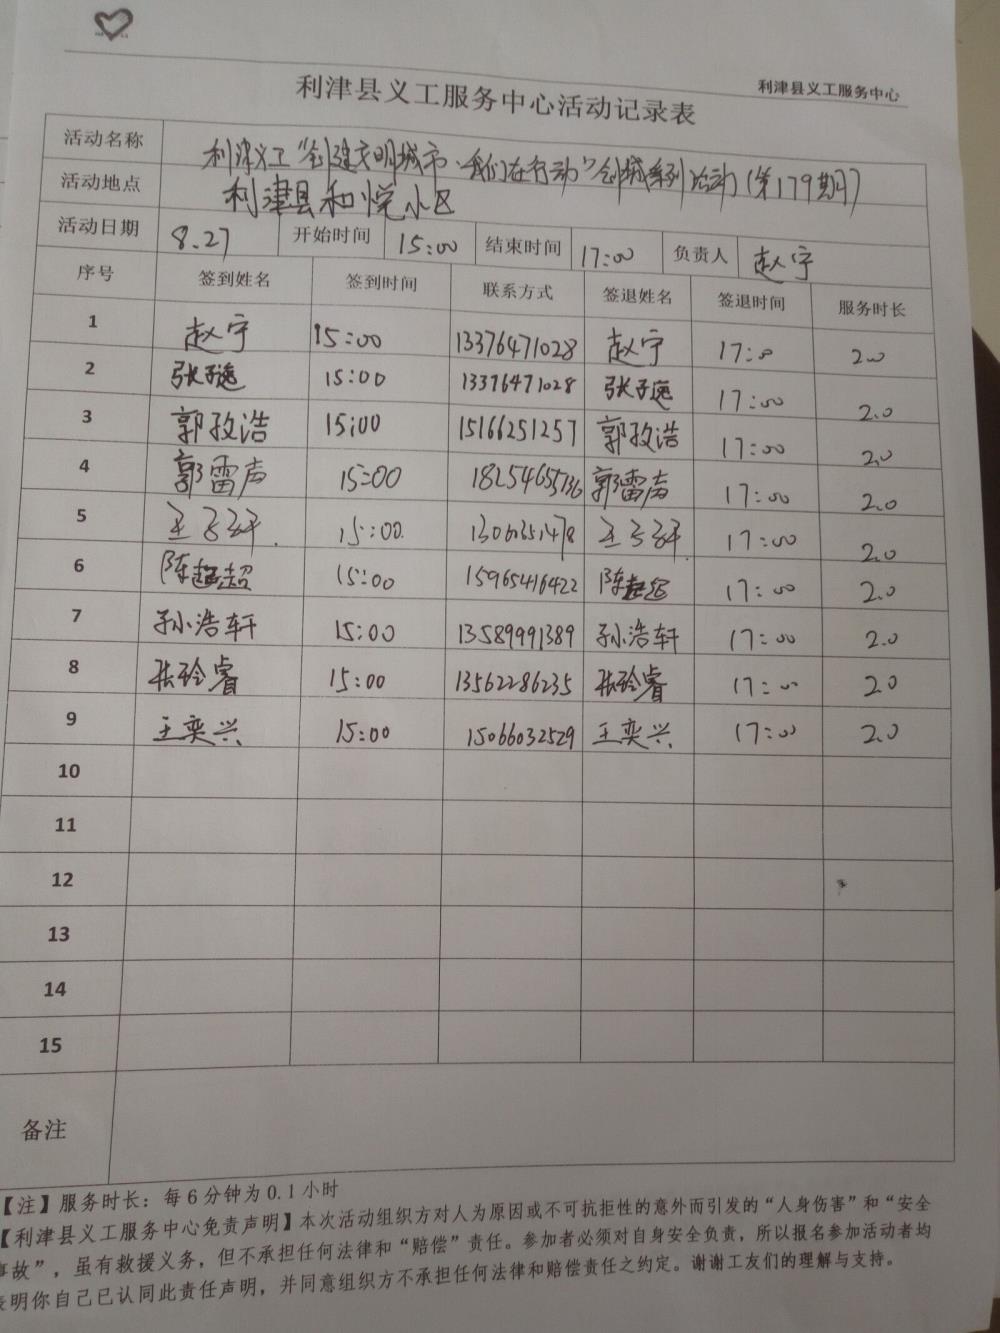 利津县义工服务中心
利津县义工服务中心活动记录表
活动名称 利津义工“创建文明城市、我们在行动”创城系列活动(第179期)
活动地点 利津县和悦小区
活动日期 8.27 开始时间 15:00 结束时间 17:00 负责人 赵宁
序号 签到姓名 签到时间 联系方式 签退姓名 签退时间 服务时长
1 赵宁 15:00 13376471028 赵宁 17:0 2.0
2 张子逸 15:00 13376471028 张子逸 17:00 2.0
3 郭孜浩 15:00 15166251257 郭孜浩 17:00 2.0
4 郭雷声 15:00 18254655736 郭雷声 17:00 2.0
5 15:00 17:00 2.0
6 陈超超 15:00 15965416422 陈超超 17:00 2.0
7 孙浩轩 15:00 13589991389 孙浩轩 17:00 2.0
8 张睿 15:00 13562286235 张睿 17:00 2.0
9 王奕兴 15:00 15066032529 王奕兴 17:00 2.0
10
11
12
13
14
15
备注
【注】服务时长：每6分钟为0.1小时
【利津县义工服务中心免责声明】本次活动组织方对人为原因或不可抗拒性的意外而引发的“人身伤害”和“安全
事故”，虽有救援义务，但不承担任何法律和“赔偿”责任。参加者必须对自身安全负责，所以报名参加活动者均
表明你自己已认同此责任声明，并同意组织方不承担任何法律和赔偿责任之约定。谢谢工友们的理解与支持。